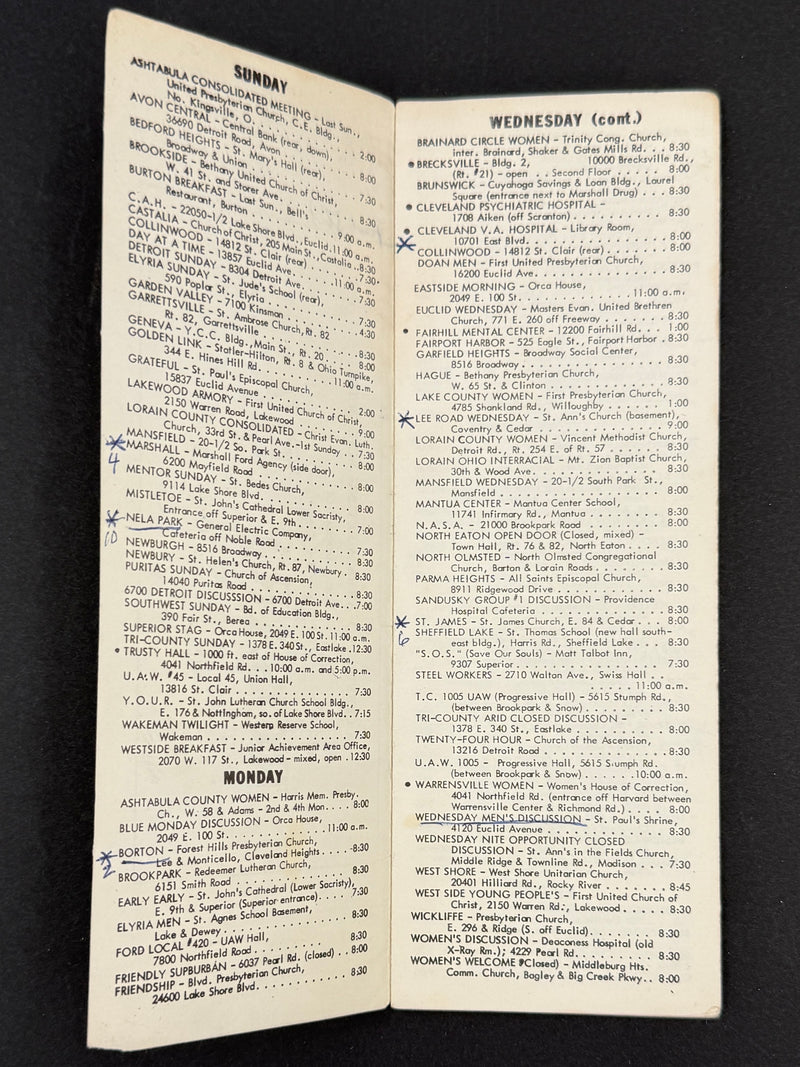 SUNDAY
ASHTABULA CONSOLIDATED MEETING - Last Sun.,
United Presbyterian Church, C.E. Bldg.,
No. Kingsville, O. . . . . . . . . . . . 2:00
AVON CENTRAL - Central Bank (rear, down),
36690 Detroit Road, Avon . . . . . . . 8:00
BEDFORD HEIGHTS - St. Mary's Hall (rear),
Broadway & Union . . . . . . . . . . . 7:30
BROOKSIDE - Bethany United Church of Christ,
W. 41 St. and Storer Ave. . . . . . . . 8:30
BURTON BREAKFAST - Last Sun., Bell's
Restaurant, Burton . . . . . . . . . 9:00 a.m.
C.A.H. - 22050-1/2 Lake Shore Blvd., Euclid. 11:00 a.m.
CASTALIA - Church of Christ, 205 Main St., Castalia . . 8:30
COLLINWOOD - 14812 St. Clair (rear) . . . . . 7:30
DAY AT A TIME - 13857 Euclid Ave. . . . . . 11:00 a.m.
DETROIT SUNDAY - 8304 Detroit Ave. . . . . . 8:30
ELYRIA SUNDAY - St. Jude's School (rear),
590 Poplar St., Elyria . . . . . . . . . 7:30
GARDEN VALLEY - 7100 Kinsman . . . . . . . 4:30
GARRETTSVILLE - St. Ambrose Church, Rt. 82
Rt. 82, Garrettsville . . . . . . . . . 8:30
GENEVA - Y.C.C. Bldg., Main St., Rt. 20 . . . . 8:00
GOLDEN LINK - Statler-Hilton, Rt. 8 & Ohio Turnpike,
344 E. Hines Hill Rd. . . . . . . . . 11:00 a.m.
GRATEFUL - St. Paul's Episcopal Church,
15837 Euclid Avenue . . . . . . . . . . 2:00
LAKEWOOD ARMORY - First United Church of Christ,
2150 Warren Road, Lakewood . . . . . . . 9:00
LORAIN COUNTY CONSOLIDATED - Christ Evan. Luth.
Church, 33rd St. & Pearl Ave. -1st Sunday . . 7:30
MANSFIELD - 20-1/2 So. Park St. . . . . . . . 8:00
MARSHALL - Marshall Ford Agency (side door),
4
6200 Mayfield Road . . . . . . . . . . 8:00
MENTOR SUNDAY - St. Bedes Church,
9114 Lake Shore Blvd. . . . . . . . . . 8:00
MISTLETOE - St. John's Cathedral Lower Sacristy,
Entrance off Superior & E. 9th . . . . . . 7:00
NELA PARK - General Electric Company,
10
Cafeteria off Noble Road . . . . . . . . 7:30
NEWBURGH - 8516 Broadway . . . . . . . . . 8:30
NEWBURY - St. Helen's Church, Rt. 87, Newbury. . 8:30
PURITAS SUNDAY - Church of Ascension,
14040 Puritas Road . . . . . . . . . . 8:30
6700 DETROIT DISCUSSSION - 6700 Detroit Ave. . . 7:00
SOUTHWEST SUNDAY - Bd. of Education Bldg.,
390 Fair St., Berea . . . . . . . . . . 8:30
SUPERIOR STAG - Orca House, 2049 E. 100 St. 11:00 a.m.
TRI-COUNTY SUNDAY - 1378 E. 340 St., Eastlake . 12:30
• TRUSTY HALL - 1000 ft. east of House of Correction,
4041 Northfield Rd. . . . 10:00 a.m. and 5:00 p.m.
U.A.W. #45 - Local 45, Union Hall,
13816 St. Clair . . . . . . . . . . . 7:30
Y.O.U.R. - St. John Lutheran Church School Bldg.,
E. 176 & Nottingham, so. of Lake Shore Blvd. . 7:15
WAKEMAN TWILIGHT - Western Reserve School,
Wakeman . . . . . . . . . . . . . . 7:30
WESTSIDE BREAKFAST - Junior Achievement Area Office,
2070 W. 117 St., Lakewood - mixed, open . 12:30
MONDAY
ASHTABULA COUNTY WOMEN - Harris Mem. Presby.
Ch., W. 58 & Adams - 2nd & 4th Mon. . . . 8:00
BLUE MONDAY DISCUSSION - Orca House,
2049 E. 100 St. . . . . . . . . . . 11:00 a.m.
BORTON - Forest Hills Presbyterian Church,
2
Lee & Monticello, Cleveland Heights . . . . 8:30
BROOKPARK - Redeemer Lutheran Church,
6151 Smith Road . . . . . . . . . . . 8:30
EARLY EARLY - St. John's Cathedral (Lower Sacristy),
E. 9th & Superior (Superior entrance) . . . . 7:30
ELYRIA MEN - St. Agnes School Basement,
Lake & Dewey . . . . . . . . . . . . 8:30
FORD LOCAL #420 - UAW Hall,
7800 Northfield Road . . . . . . . . . . 8:30
FRIENDLY SUPBURBAN - 6037 Pearl Rd. (closed) . . 8:00
FRIENDSHIP - Blvd. Presbyterian Church,
24600 Lake Shore Blvd. . . . . . . . . . 8:30
WEDNESDAY (cont.)
BRAINARD CIRCLE WOMEN - Trinity Cong. Church,
inter. Brainard, Shaker & Gates Mills Rd. . . 8:30
• BRECKSVILLE - Bldg. 2, 10000 Brecksville Rd.,
(Rt. #21) - open . . Second Floor . . . . . 8:00
BRUNSWICK - Cuyahoga Savings & Loan Bldg., Laurel
Square (entrance next to Marshall Drug) . . . 8:30
• CLEVELAND PSYCHIATRIC HOSPITAL -
1708 Aiken (off Scranton) . . . . . . . . 8:30
• CLEVELAND V.A. HOSPITAL - Library Room,
10701 East Blvd. . . . . . . . . . . . 8:00
COLLINWOOD - 14812 St. Clair (rear) . . . . . 8:00
DOAN MEN - First United Presbyterian Church,
16200 Euclid Ave. . . . . . . . . . . 8:30
EASTSIDE MORNING - Orca House,
2049 E. 100 St. . . . . . . . . . . 11:00 a.m.
EUCLID WEDNESDAY - Masters Evan. United Brethren
Church, 771 E. 260 off Freeway . . . . . . 8:30
• FAIRHILL MENTAL CENTER - 12200 Fairhill Rd. . . 1:00
FAIRPORT HARBOR - 525 Eagle St., Fairport Harbor . 8:30
GARFIELD HEIGHTS - Broadway Social Center,
8516 Broadway . . . . . . . . . . . . 8:30
HAGUE - Bethany Presbyterian Church,
W. 65 St. & Clinton . . . . . . . . . . 8:30
LAKE COUNTY WOMEN - First Presbyterian Church,
4785 Shankland Rd., Willoughby . . . . . 1:00
LEE ROAD WEDNESDAY - St. Ann's Church (basement),
Coventry & Cedar . . . . . . . . . . . 9:00
LORAIN COUNTY WOMEN - Vincent Methodist Church,
Detroit Rd., Rt. 254 E. of Rt. 57 . . . . . 8:30
LORAIN OHIO INTERRACIAL - Mt. Zion Baptist Church,
30th & Wood Ave. . . . . . . . . . . 8:30
MANSFIELD WEDNESDAY - 20-1/2 South Park St.,
Mansfield . . . . . . . . . . . . . 8:00
MANTUA CENTER - Mantua Center School,
11741 Infirmary Rd., Mantua . . . . . . . 8:30
N.A.S.A. - 21000 Brookpark Road . . . . . . 8:00
NORTH EATON OPEN DOOR (Closed, mixed) -
Town Hall, Rt. 76 & 82, North Eaton . . . . 8:30
NORTH OLMSTED - North Olmsted Congregational
Church, Barton & Lorain Roads . . . . . . 8:30
PARMA HEIGHTS - All Saints Episcopal Church,
8911 Ridgewood Drive . . . . . . . . . 8:30
SANDUSKY GROUP #1 DISCUSSION - Providence
Hospital Cafeteria . . . . . . . . . . . 8:30
ST. JAMES - St. James Church, E. 84 & Cedar . . . 8:00
6
SHEFFIELD LAKE - St. Thomas School (new hall south-
east bldg.), Harris Rd., Sheffield Lake . . . 8:30
"S.O.S." (Save Our Souls) - Matt Talbot Inn,
9307 Superior . . . . . . . . . . . . 7:30
STEEL WORKERS - 2710 Walton Ave., Swiss Hall . .
. . . . . 11:00 a.m.
T.C. 1005 UAW (Progressive Hall) - 5615 Stumph Rd.,
(between Brookpark & Snow) . . . . . . . 8:30
TRI-COUNTY ARID CLOSED DISCUSSION -
1378 E. 340 St., Eastlake . . . . . . . . 8:00
TWENTY-FOUR HOUR - Church of the Ascension,
13216 Detroit Road . . . . . . . . . . 8:30
U.A.W. 1005 - Progressive Hall, 5615 Stumph Rd.
(between Brookpark & Snow) . . . . . 10:00 a.m.
• WARRENSVILLE WOMEN - Women's House of Correction,
4041 Northfield Rd. (entrance off Harvard between
Warrensville Center & Richmond Rd.) . . . . 8:00
WEDNESDAY MEN'S DISCUSSION - St. Paul's Shrine,
4120 Euclid Avenue . . . . . . . . . . 8:30
WEDNESDAY NITE OPPORTUNITY CLOSED
DISCUSSION - St. Ann's in the Fields Church,
Middle Ridge & Townline Rd., Madison . . . 7:30
WEST SHORE - West Shore Unitarian Church,
20401 Hilliard Rd., Rocky River . . . . . . 8:45
WEST SIDE YOUNG PEOPLE'S - First United Church of
Christ, 2150 Warren Rd., Lakewood . . . . . 8:30
WICKLIFFE - Presbyterian Church,
E. 296 & Ridge (S. off Euclid) . . . . . . 8:30
WOMEN'S DISCUSSION - Deaconess Hospital (old
X-Ray Rm.); 4229 Pearl Rd. . . . . . . . 8:30
WOMEN'S WELCOME (Closed) - Middleburg Hts.
Comm. Church, Bagley & Big Creek Pkwy. . . 8:00